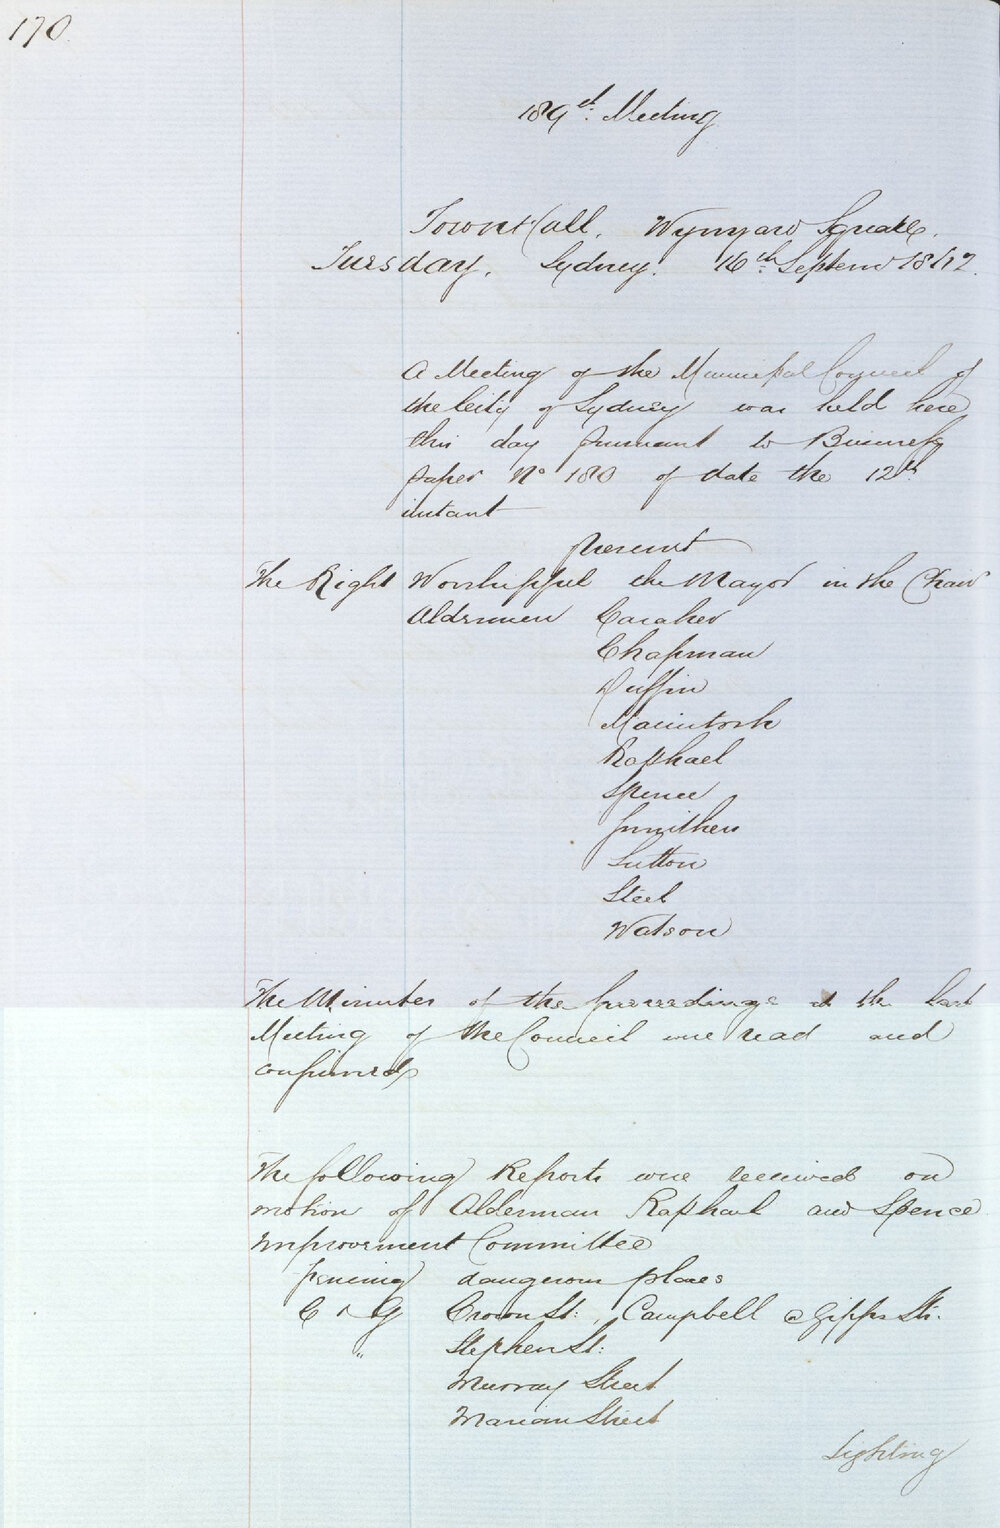 170
189st. Meeting
Town Hall. Wynyard Square.
Tuesday, Sydney. 16th Septem
A Meeting of the Municipal Council of
the City of Sydney was held here
this day pursuant to Business
paper No 180 of date the 12th
instant
present
The Right Worshipful the Mayor in the Chair
Aldermen Caraher
Chapman
Duffin
Macintosh
Raphael
Spence
Smithers
Sutton
Steel
Watson
The Minutes of the proceedings at the last
Meeting of the Council were read and
confirmed
The following Reports were received on
motion of Alderman Raphael and Spence
Improvement Committee
fencing dangerous places
C & G Crown St:, Campbell @ Gipps Sts.
" Stephen St:
Murray Street
Marian Street
Lighting